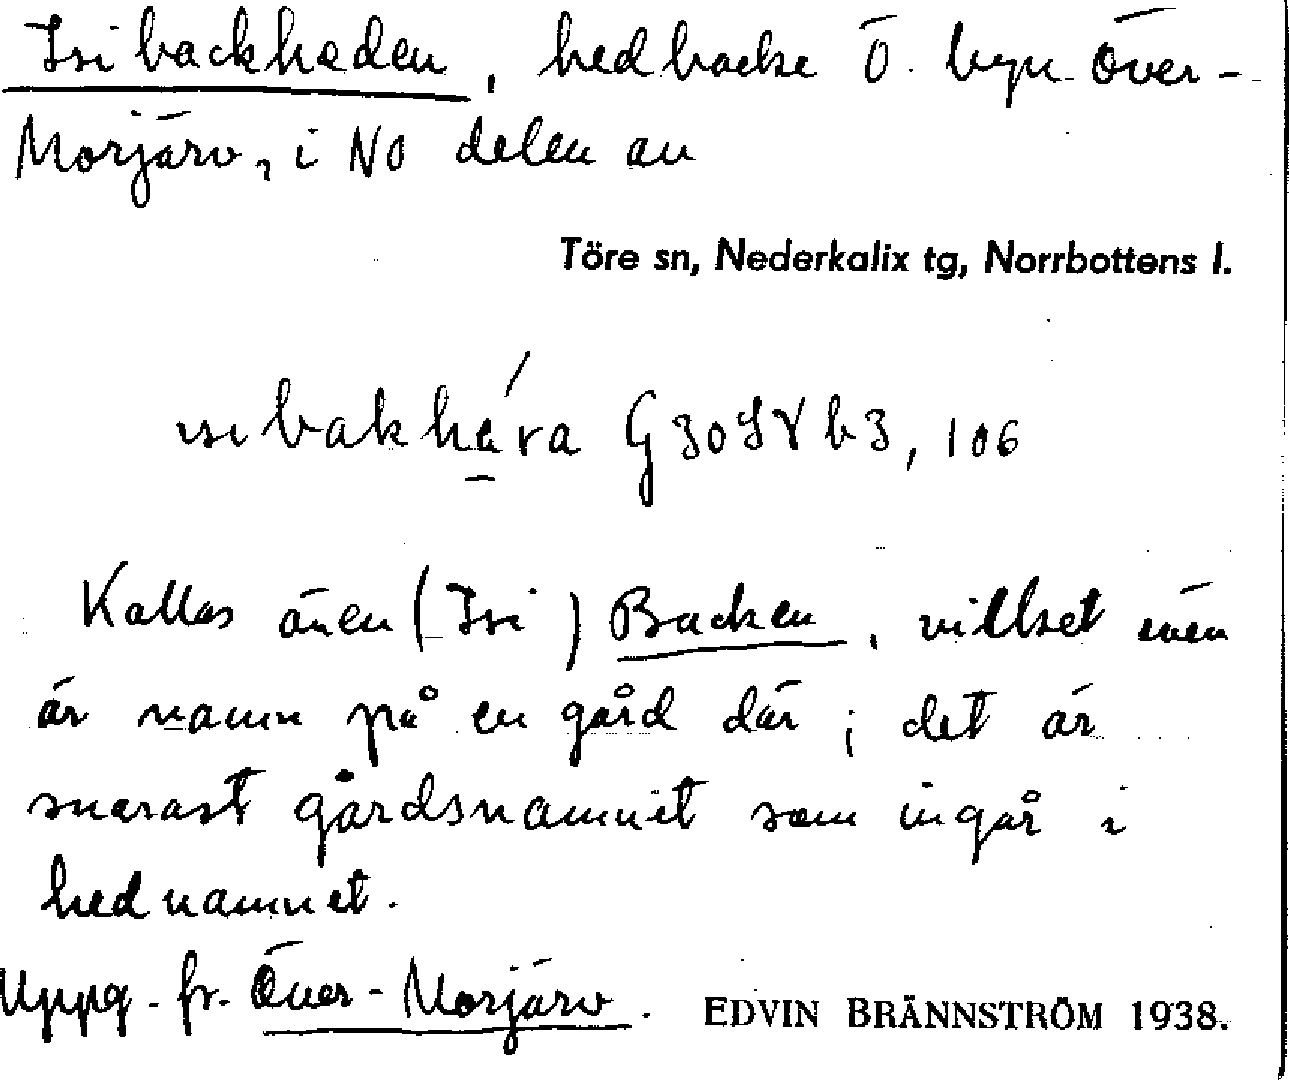 Isibackheden, hedbacke Ö. byn Över-
Morjärv, i NO delen av
Töre sn, Nederkalix tg, Norrbottens l.
ɩsɩbakhá̱ra
Kallas även (Isi) Backen, vilket även
är namn på en gård där; det är
snarast gårdsnamnet som ingår i
hednamnet.
Uppg. fr. Över-Morjärv. EDVIN BRÄNNSTRÖM 1938.